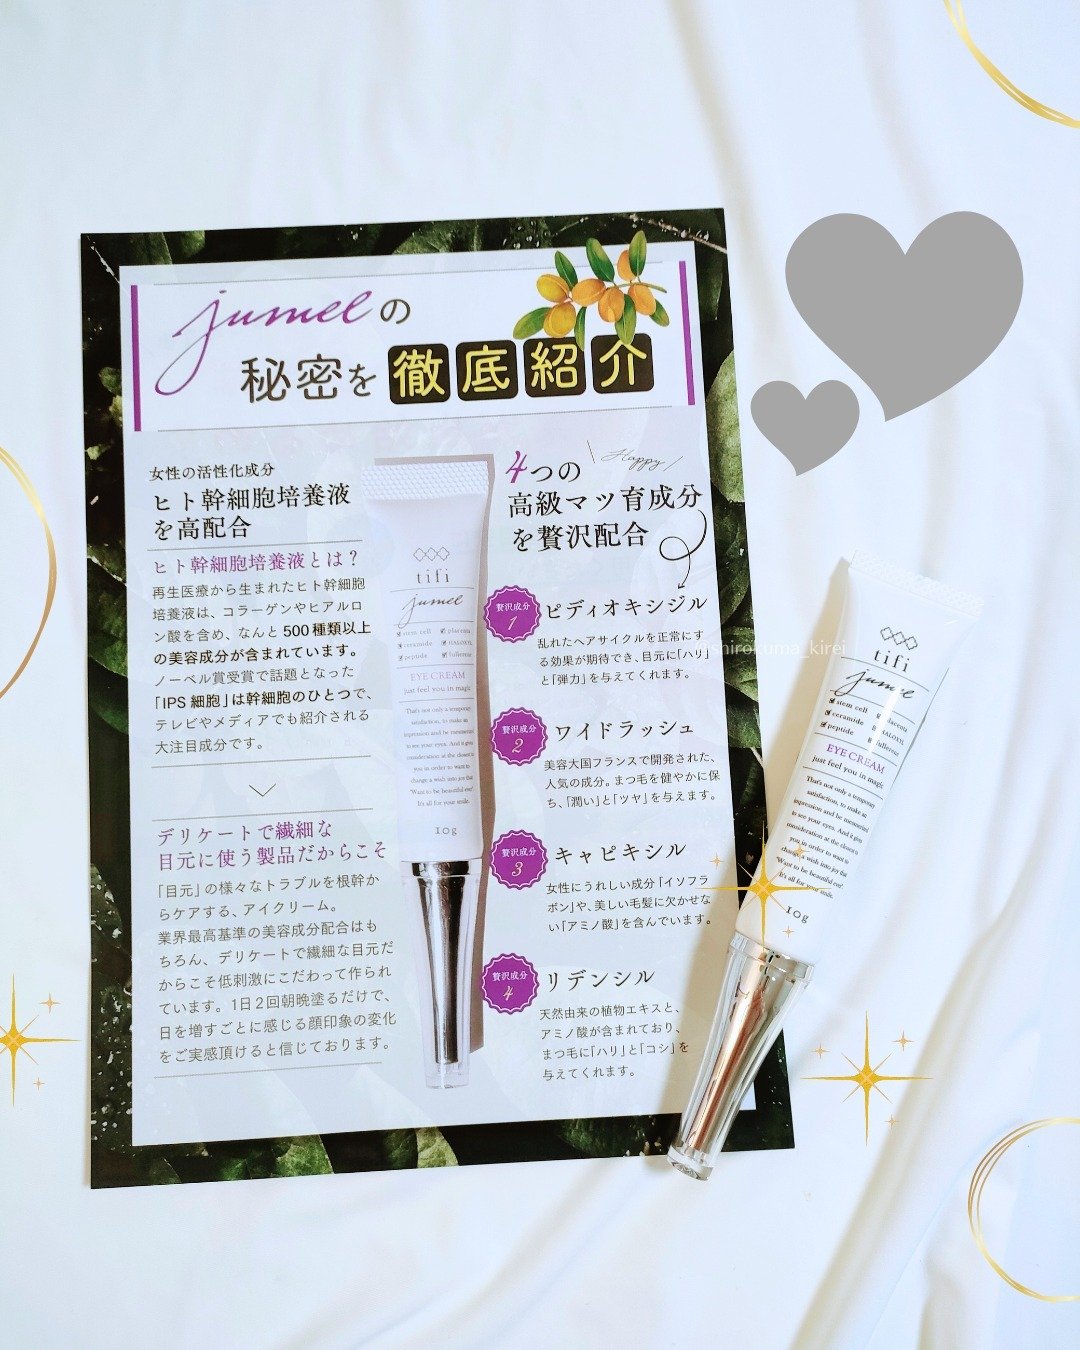 jumelの
秘密を徹底紹介
女性の活性化成分
ヒト幹細胞培養液
を高配合
ヒト幹細胞培養液とは？
再生医療から生まれたヒト幹細胞
培養液は、コラーゲンやヒアルロ
ン酸を含め、なんと500種類以上
の美容成分が含まれています。
ノーベル賞受賞で話題となった
「IPS細胞」は幹細胞のひとつで、
テレビやメディアでも紹介される
大注目成分です。
デリケートで繊細な
目元に使う製品だからこそ
「目元」の様々なトラブルを根幹か
らケアする、アイクリーム。
業界最高基準の美容成分配合はも
ちろん、デリケートで繊細な目元だ
からこそ低刺激にこだわって作られ
ています。1日2回朝晩塗るだけで、
日を増すごとに感じる顔印象の変化
をご実感頂けると信じております。
tifi
jumel
stem cell
placenta
ceramide
HALOXYL
peptide
fullerene
EYE CREAM
just feel you in magic
That's not only a temporary
satisfaction, to make an
impression and be memorized
to see your eyes. And it gives
consideration at the closest to
you in order to want to
change a wish into joy that
"Want to be beautiful eye!"
It's all for your smile.
10g
Happy
4つの
高級マツ育成分
を贅沢配合
贅沢成分
1
ピディオキシジル
乱れたヘアサイクルを正常にす
る効果が期待でき、目元に「ハリ」
と「弾力」を与えてくれます。
贅沢成分
2
ワイドラッシュ
美容大国フランスで開発された、
人気の成分。まつ毛を健やかに保
ち、「潤い」と「ツヤ」を与えます。
贅沢成分
3
キャピキシル
女性にうれしい成分「イソフラ
ボン」や、美しい毛髪に欠かせな
い「アミノ酸」を含んでいます。
贅沢成分
4
リデンシル
天然由来の植物エキスと、
アミノ酸が含まれており、
まつ毛に「ハリ」と「コシ」を
与えてくれます。
shirokuma_kirei
tifi
jumel
stem cell
placenta
ceramide
HALOXYL
peptide
fullerene
EYE CREAM
just feel you in magic
That's not only a temporary
satisfaction, to make an
impression and be memorized
to see your eyes. And it gives
consideration at the closest to
you in order to want to
change a wish into joy that
"Want to be beautiful eye!"
It's all for your smile.
10g